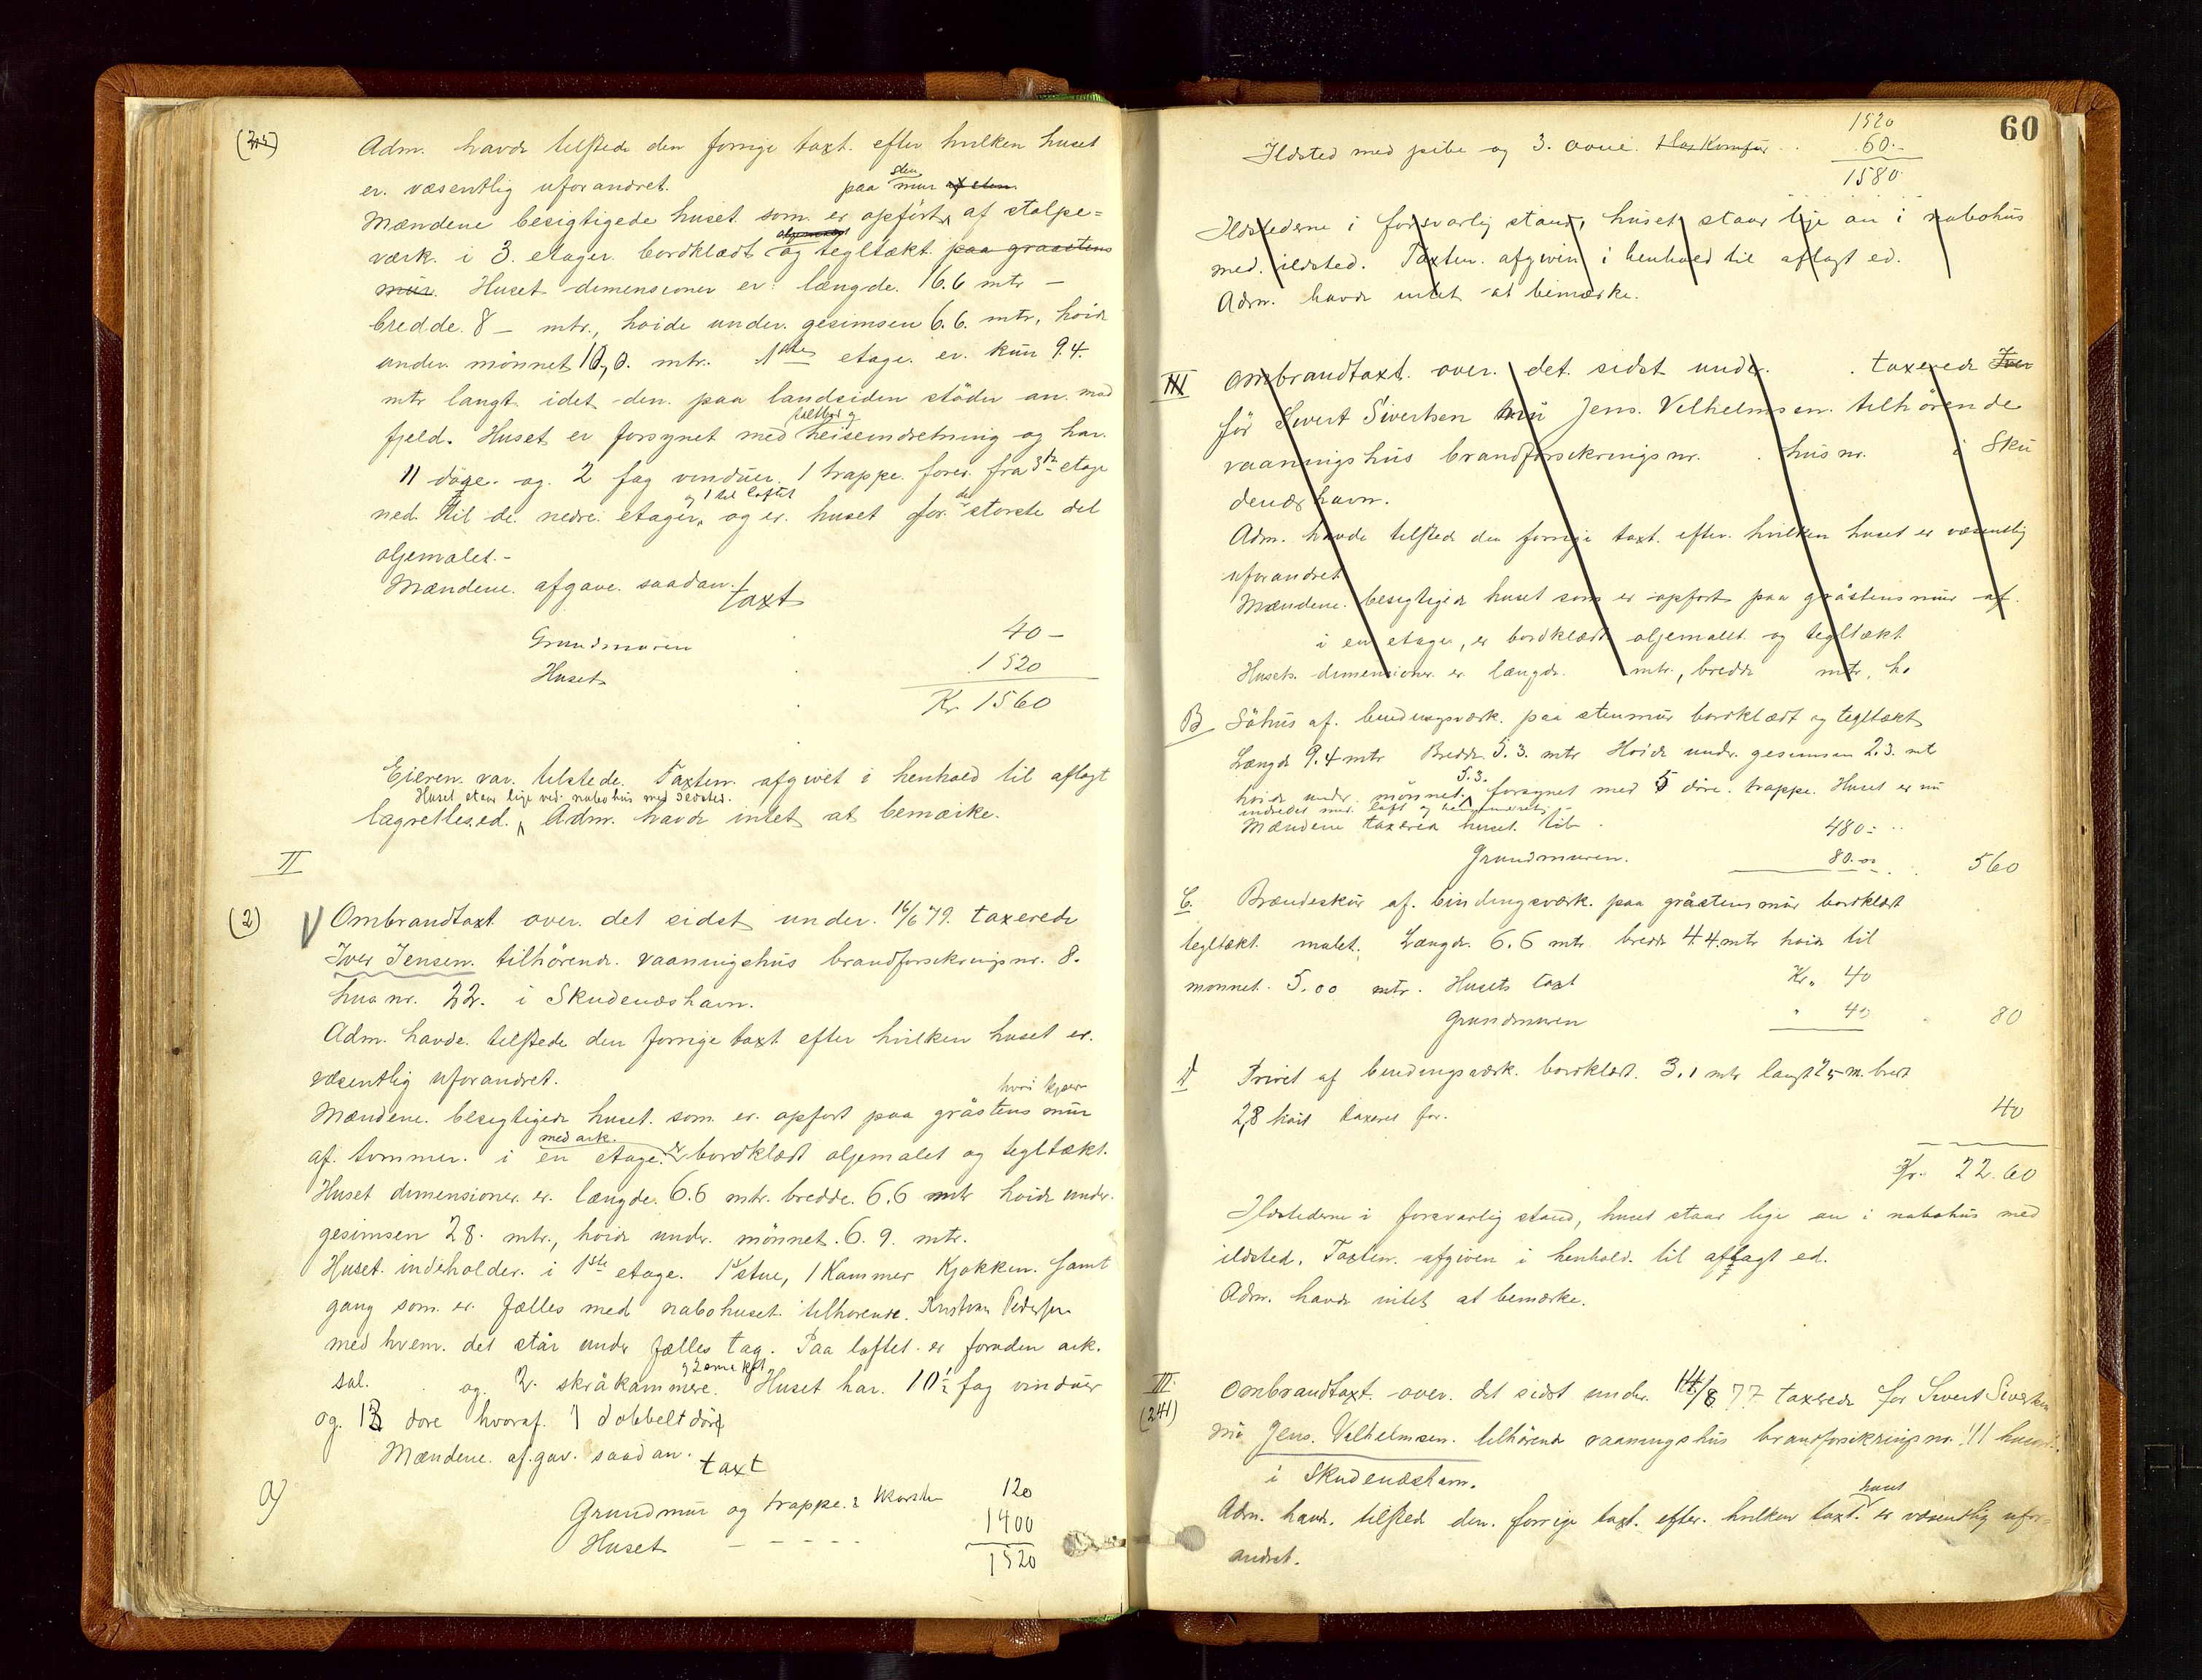 Adm. havde tilstede den forrige taxt. efter hvilken huset
er. væsentlig uforandret. paa sten mur af sten
Mændene besigtigede huset som er opført af stolpe=
værk. i 3. etager. bordklædt og tegltækt paa graastens
mur. Huset dimensioner er: længde. 16.6 mtr –
bredde. 8 – mtr., høide under. gesimsen 6.6. mtr, høide
under mønnet 10,0. mtr. 1ste etage. er. kun 9.4.
mtr langt idet den. paa landsiden støder an. mod
fjeld. Huset er forsynet med heiseindretning og har.
11 døre. og. 2 fag vinduer. 1 trappe. fører. fra 3die etage
og 1 til loftet
ned til de nedre. etager, og er. huset for det største del
oljemalet. –
Mændene. afgave. saadan.
taxt
Grundmuren 40 –
Huset 1520
Kr. 1560
Eieren. var. tilstede. Taxten. afgivet i henhold til aflagt
Huset staar lige ved. nabohus med ildsted.
lagrettesed. Adm. havde intet at bemærke.
II
(2) Ombrandtaxt over. det sidst under. 16/6 79. taxerede
Iver Jensen. tilhørende. vaaningshus brandforsikringsnr. 8.
hus nr. 22. i Skudeneshavn.
Adm. havde. tilstede den forrige taxt efter hvilken huset er.
væsentlig uforandret.
hvori kjæler
Mændene. besigtigede huset. som er. opført paa gråstens mur
med ark.
af. tømmer. i en etage. er bordklædt oljemalet og tegltækt.
Huset dimensioner. er. længde. 6.6 mtr. bredde. 6.6 mtr høide under.
gesimsen 28. mtr., høide under. mønnet. 6. 9. mtr.
Huset. indeholder. i 1ste etage. 1 stue, 1 Kammer Kjøkken. samt
gang som. er. fælles med nabohuset tilhørende. Kristian Pedersen
med hvem. det står under fælles tag. Paa loftet er foruden ark.
sal. og. 2. skråkammere. Huset har. 10½ fag vinduer
og. 13 døre hvoraf. 1 dobbeltdør
Mændene. afgav. saadan.
taxt
a) Grundmur og trappe. & skorsten 120
Huset – – – – – 1400
1520
60
1520
Ildsted med pibe og 3. ovne. 60.–
1580
Ildstederne i forsvarlig stand, huset staar lige an i nabohus
med. ildsted. Taxten. afgiven i henhold til aflagt ed.
Adm. havde intet at bemærke.
III Ombrandtaxt. over. det. sidst under. . taxerede Iver
for Sivert Sivertsen nu Jens. Vilhelmsen. tilhørende
vaaningshus brandforsikringsnr. . hus nr. i Sku
deneshavn.
Adm. havde tilstede den forrige taxt. efter. hvilken huset er væsentlig
uforandret
Mændene. besigtigede huset som er opført paa gråstens mur af.
i en etage, er bordklædt oljemalet og tegltækt
Husets. dimensioner. er længde. mtr., bredde mtr, h.
B Søhus af. bindingsværk. paa stenmur bordklædt og tegltækt
Længde 9.4 mtr Bredde 5.3. mtr Høide under. gesimsen 2.3. mtr
høide under. mønnet. 5.3. forsynet med 5 døre. trappe. Huset er nu
indredet med. loft og
Mændene taxerede huset til 480:
Grundmuren. 80.00 560
C. Brændeskur af. bindingsværk. paa gråstensmur bordklædt
tegltækt. malet. Længde. 6.6 mtr bredde 4.4 mtr høide til
mønnet. 5.00 mtr. Husets taxt Kr. 40
Grundmuren " 40 80
D Privet af bindingsværk. bordklædt. 3.1 mtr langt 2,5 m. bredt
2,8 høit taxeret for. 40
Kr. 22.60
Ildstederne i forsvarlig stand, huset staar lige an i nabohus med
ildsted. Taxten. afgiven i henhold. til aflagt ed.
Adm. havde intet at bemærke.
III.
(241) Ombrandtaxt. over. det sidst under. 14/8 77 taxerede for Sivert Sivertsen
nu Jens. Vilhelmsen. tilhørende vaaningshus brandforsikringsnr. 11 husnr.
i Skudeneshavn.
huset
Adm. havde. tilstede den. forrige taxt. efter. hvilken taxt. er væsentlig ufor=
andret.